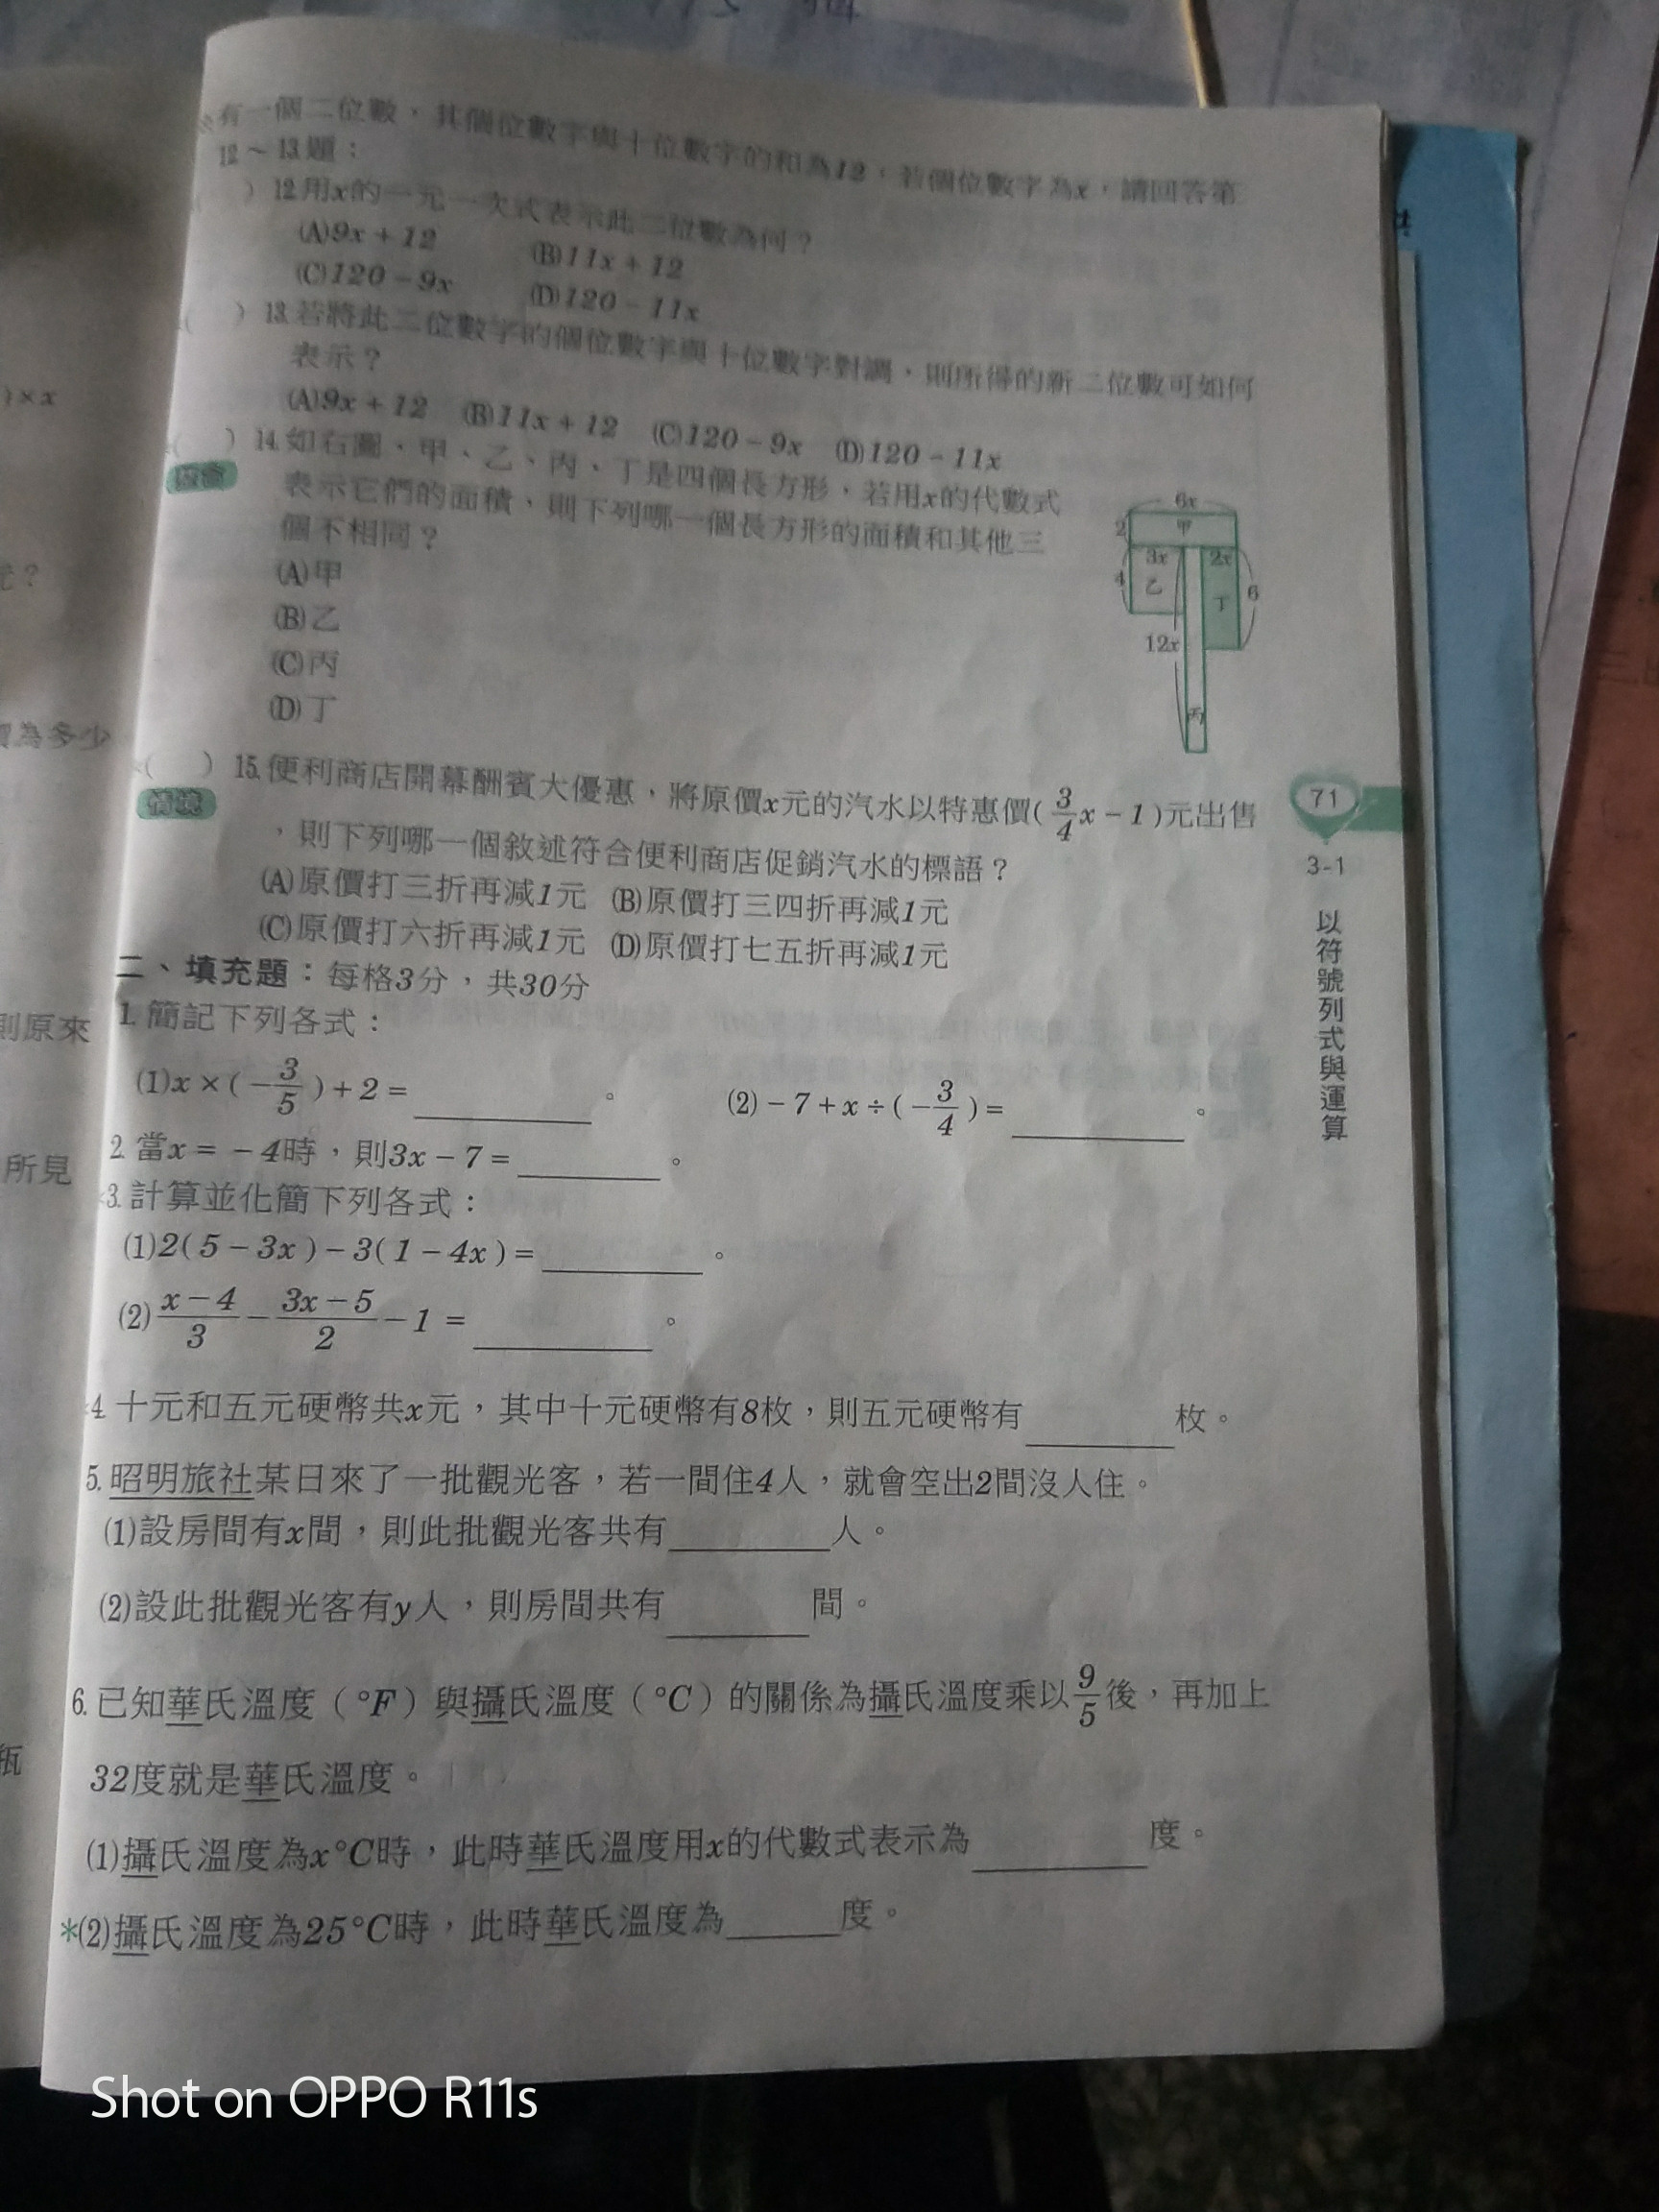 有一個二位數，其個位數字與十位數字的和為12，若個位數字為x，請回答第
12～13題：
( ) 12.用x的一元一次式表示此二位數為何？
(A)9x＋12 (B)11x＋12
(C)120－9x (D)120－11x
( ) 13.若將此二位數字的個位數字與十位數字對調，則所得的新二位數可如何
表示？
(A)9x＋12 (B)11x＋12 (C)120－9x (D)120－11x
( ) 14.如右圖、甲、乙、丙、丁是四個長方形，若用x的代數式
表示它們的面積、則下列哪一個長方形的面積和其他三
個不相同？
(A)甲
(B)乙
(C)丙
(D)丁
6x
2
甲
3x
2x
4
乙
丁
6
12x
丙
( ) 15.便利商店開幕酬賓大優惠，將原價x元的汽水以特惠價(3/4x－1)元出售
情境
，則下列哪一個敘述符合便利商店促銷汽水的標語？
(A)原價打三折再減1元 (B)原價打三四折再減1元
(C)原價打六折再減1元 (D)原價打七五折再減1元
二、填充題：每格3分，共30分
1.簡記下列各式：
(1)x×(－3/5)＋2＝______。 (2)－7＋x÷(－3/4)＝______。
2.當x＝－4時，則3x－7＝______。
3.計算並化簡下列各式：
(1)2(5－3x)－3(1－4x)＝______。
(2)x－4/3－3x－5/2－1＝______。
4.十元和五元硬幣共x元，其中十元硬幣有8枚，則五元硬幣有______枚。
5.昭明旅社某日來了一批觀光客，若一間住4人，就會空出2間沒人住。
(1)設房間有x間，則此批觀光客共有______人。
(2)設此批觀光客有y人，則房間共有______間。
6.已知華氏溫度（°F）與攝氏溫度（°C）的關係為攝氏溫度乘以9/5後，再加上
32度就是華氏溫度。
(1)攝氏溫度為x°C時，此時華氏溫度用x的代數式表示為______度。
*(2)攝氏溫度為25°C時，此時華氏溫度為______度。
71
3-1
以符號列式與運算
)×x
元？
價為多少
則原來
所見
瓶
Shot on OPPO R11s